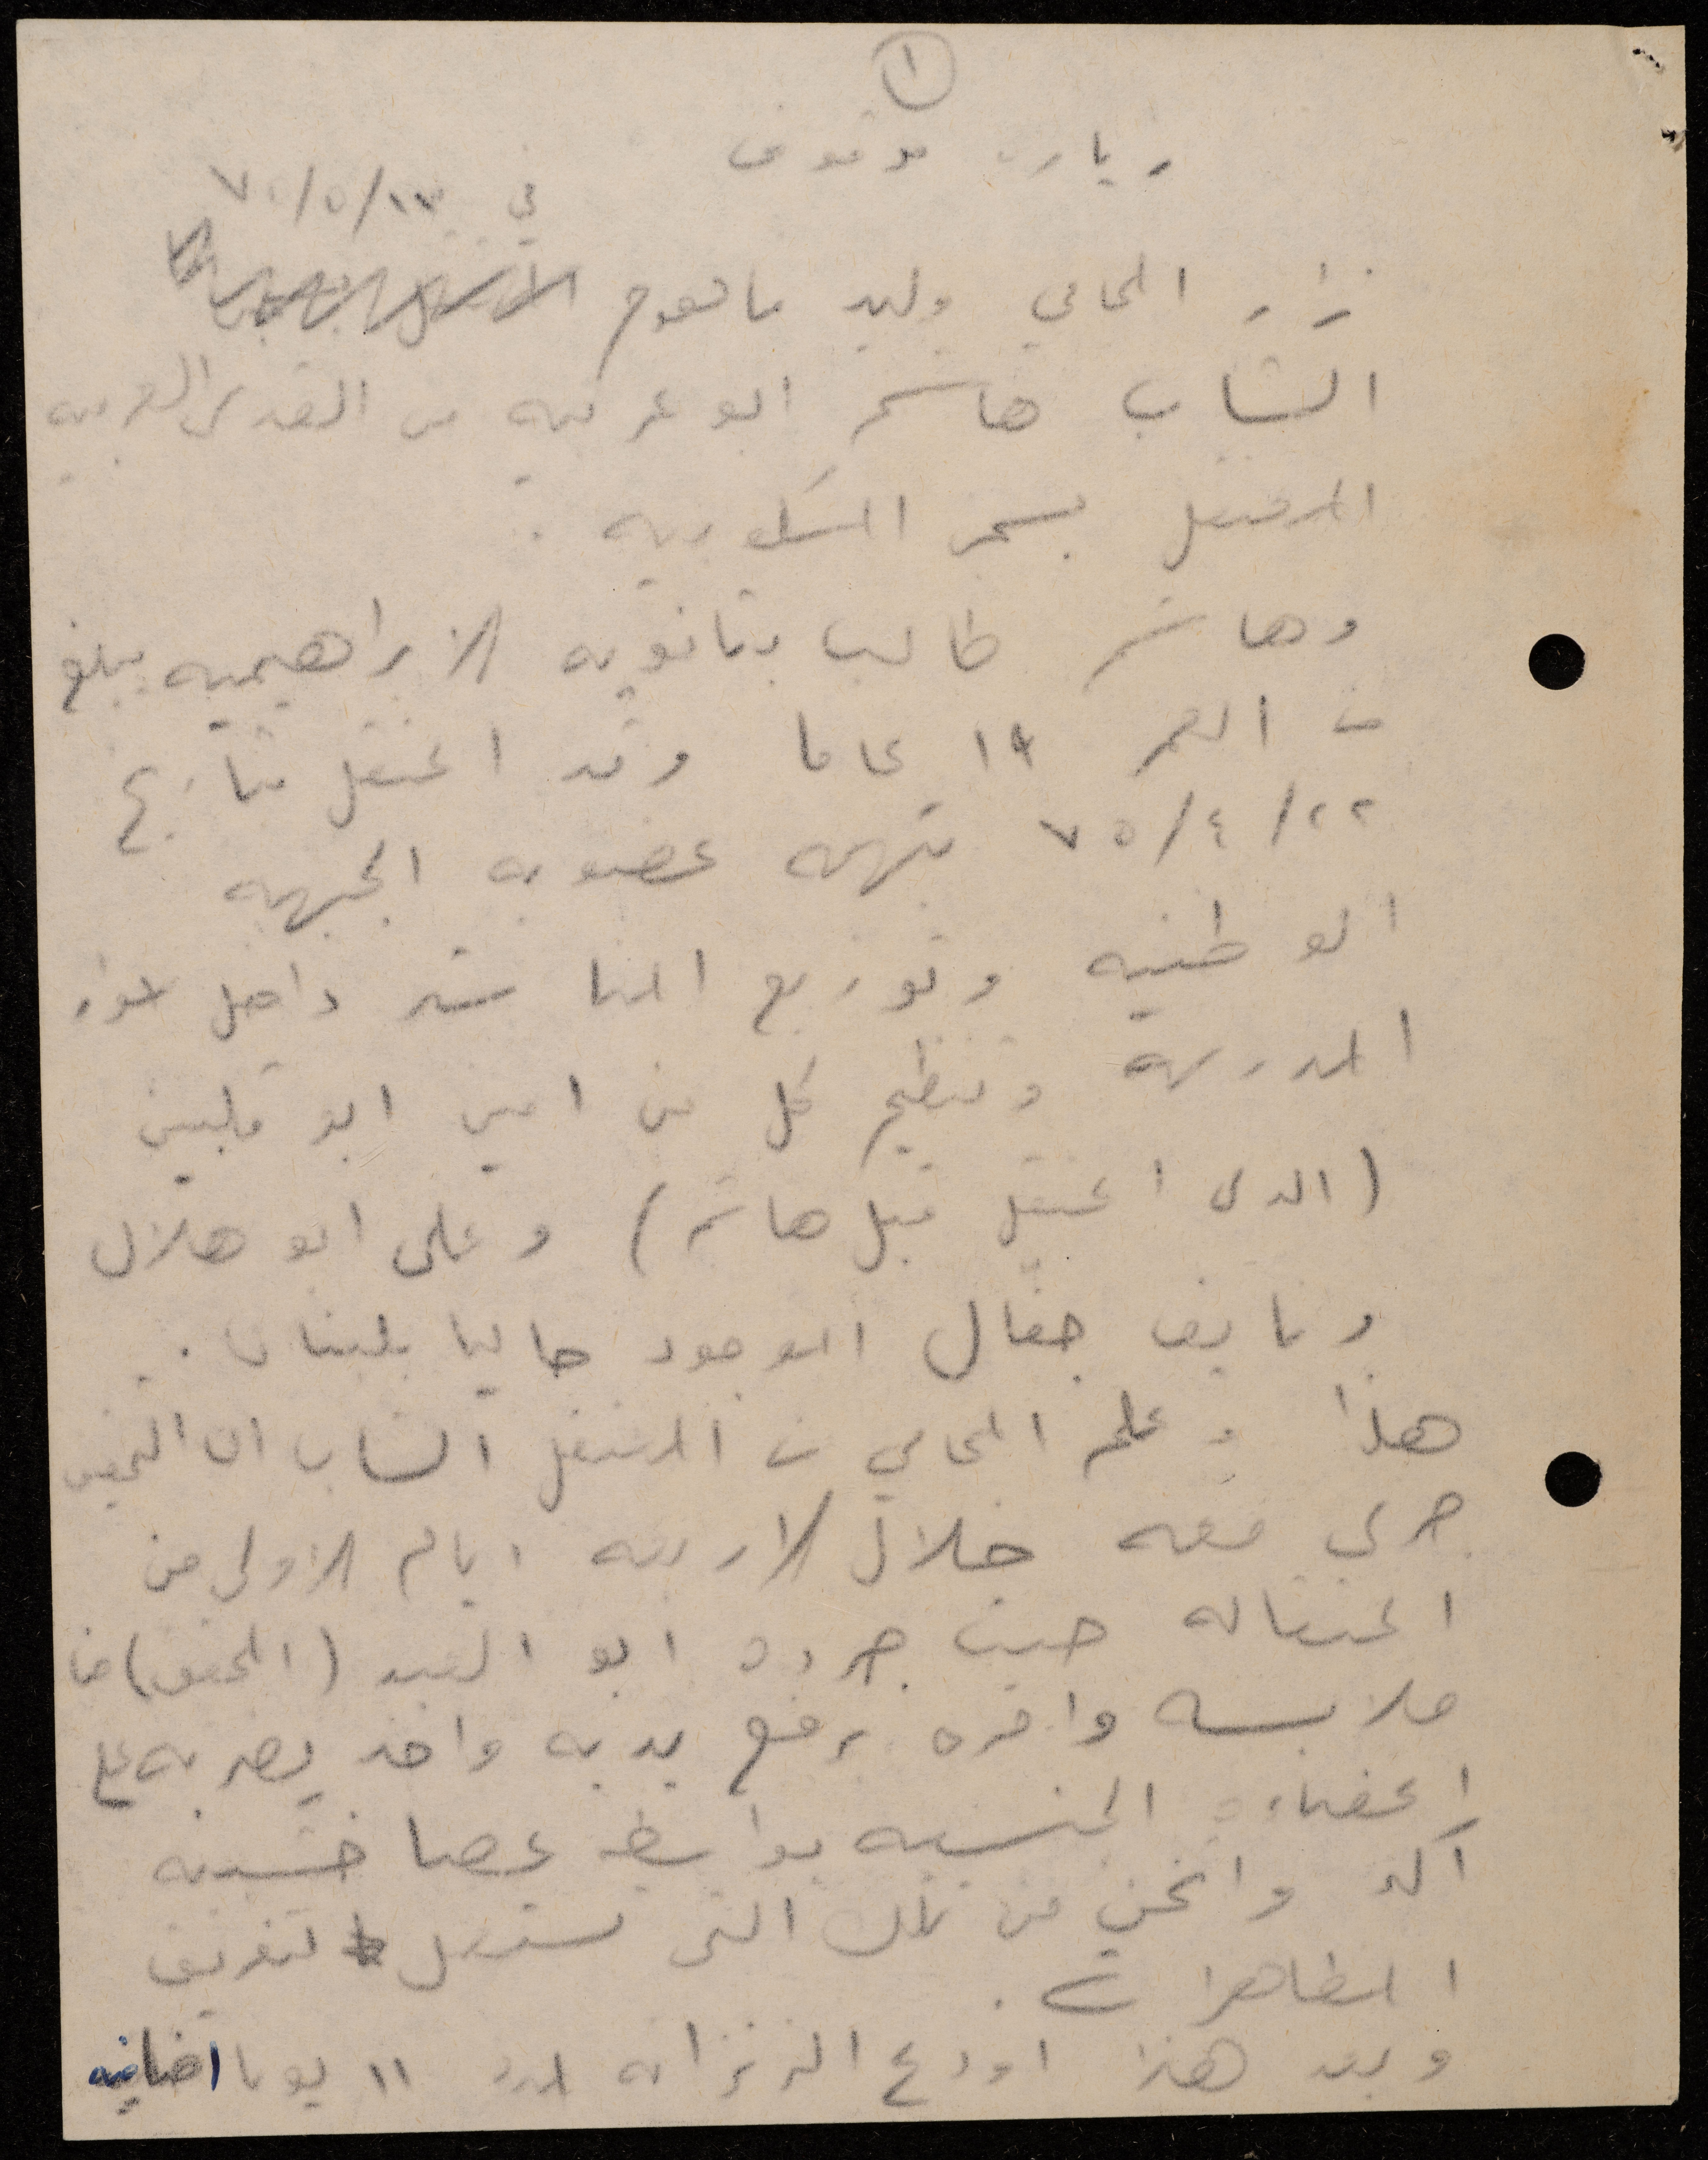 ١
زيارة موقوف
في ١٣/٥/٧٥
زار المحامي وليد ماهوم
الشاب هاشم ابو غربيه من القدس العربيه
المعتقل بسجن المسكوبيه .
وهاشم طالب بثانويه الابراهيميه يبلغ
من العمر ١٩ عاما وقد اعتقل بتاريخ
٢٢/٤/٧٥ بتهمه عضويه الجبهه
الوطنيه وتوزيع المناشير داخل
المدرسه وتنظيم كل من امين ابو
(الذي اعتقل قبل هاشم) وعلي ابو هلال
ونايف جفال الموجود حاليا بلبنان .
هذا وعلم المحامي من المعتقل الشاب ان التحقيق
جرى معه خلال الاربعه ايام الاولى من
اعتقاله حيث جرده ابو العبد (المحقق) من
ملابسه وامره برفع يديه واخذ يضربه على
اعضاءه الجنسيه بواسطه عصا خشبيه
اكبر واثخن من تلك التي تستعمل لتفريق
المظاهرات .
وبعد هذا اودع الزنزانه لمده ١١ يوما اضافيه